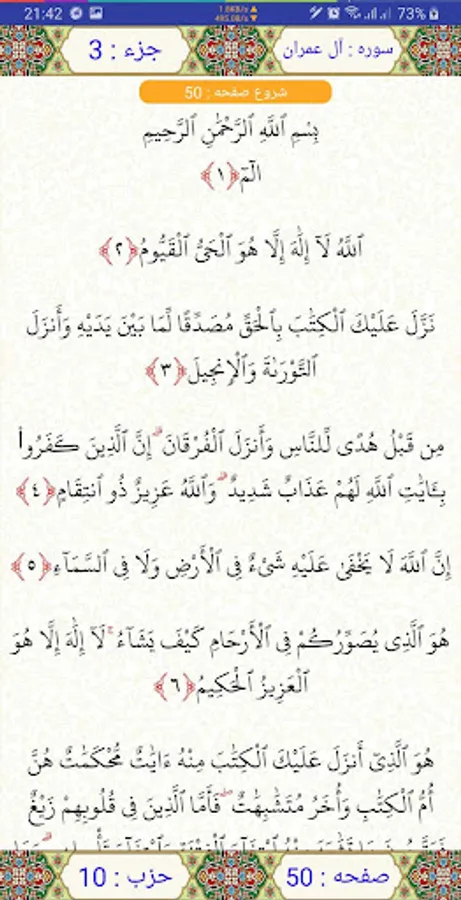 21:42 1.8KB/s 485.0B/s 73%
سوره : آل عمران جزء : 3
شروع صفحه : 50
بِسْمِ ٱللَّهِ ٱلرَّحْمَٰنِ ٱلرَّحِيمِ
الٓمٓ ﴿١﴾
ٱللَّهُ لَآ إِلَٰهَ إِلَّا هُوَ ٱلْحَىُّ ٱلْقَيُّومُ ﴿٢﴾
نَزَّلَ عَلَيْكَ ٱلْكِتَٰبَ بِٱلْحَقِّ مُصَدِّقًا لِّمَا بَيْنَ يَدَيْهِ وَأَنزَلَ
ٱلتَّوْرَىٰةَ وَٱلْإِنجِيلَ ﴿٣﴾
مِن قَبْلُ هُدًى لِّلنَّاسِ وَأَنزَلَ ٱلْفُرْقَانَ ۗ إِنَّ ٱلَّذِينَ كَفَرُوا۟
بِـَٔايَٰتِ ٱللَّهِ لَهُمْ عَذَابٌ شَدِيدٌ ۗ وَٱللَّهُ عَزِيزٌ ذُو ٱنتِقَامٍ ﴿٤﴾
إِنَّ ٱللَّهَ لَا يَخْفَىٰ عَلَيْهِ شَىْءٌ فِى ٱلْأَرْضِ وَلَا فِى ٱلسَّمَآءِ ﴿٥﴾
هُوَ ٱلَّذِى يُصَوِّرُكُمْ فِى ٱلْأَرْحَامِ كَيْفَ يَشَآءُ ۚ لَآ إِلَٰهَ إِلَّا هُوَ
ٱلْعَزِيزُ ٱلْحَكِيمُ ﴿٦﴾
هُوَ ٱلَّذِىٓ أَنزَلَ عَلَيْكَ ٱلْكِتَٰبَ مِنْهُ ءَايَٰتٌ مُّحْكَمَٰتٌ هُنَّ
أُمُّ ٱلْكِتَٰبِ وَأُخَرُ مُتَشَٰبِهَٰتٌ ۖ فَأَمَّا ٱلَّذِينَ فِى قُلُوبِهِمْ زَيْغٌ
صفحه : 50 حزب : 10